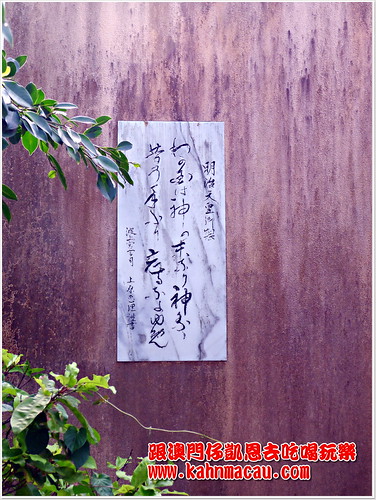 明治天皇御製
わが国は神の末なり神祭る
昔の手ぶり忘るなよゆめ
跟澳門仔凱恩去吃喝玩樂
www.kahnmacau.com